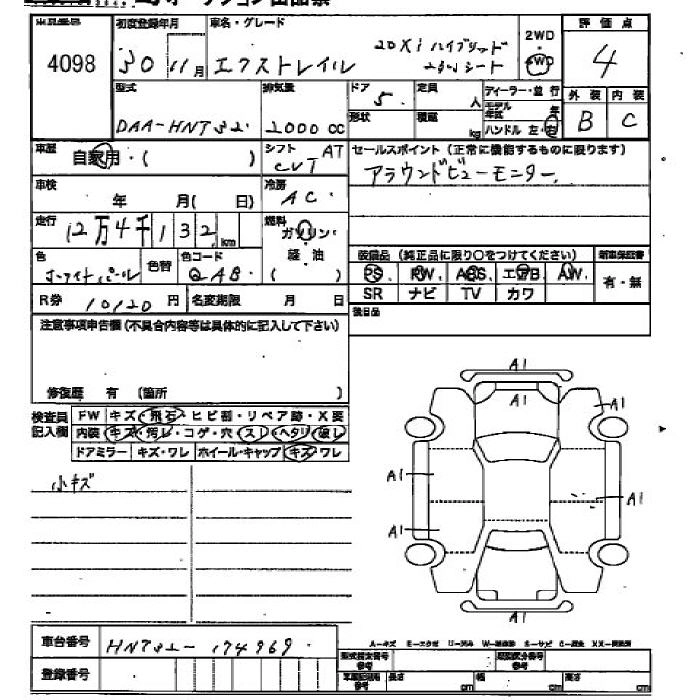 4098
初度登録年月
30 11月
車名・グレード
20Xi ハイブリッド
エクストレイル
2列シート
2WD
4WD
評価点
4
型式
DAA-HNT32
排気量
2000 CC
ドア
5
定員
人
形状
積載
kg
ディーラー・並行
モデル年式 年
ハンドル 左・右
外装 内装
B C
車歴
自家用・( )
シフト AT
CVT
セールスポイント (正常に機能するものに限ります)
アラウンドビューモニター
車検
年 月( 日)
冷房
AC
走行
12万4千132km
燃料
ガソリン・
軽油
( )
色
ホワイトパール
色替
色コード
QAB
装備品 (純正品に限り〇をつけてください)
新車保証書
PS PW ABS エアB AW
有・無
SR ナビ TV カワ
R券 10120 円
名変期限 月 日
後日品
注意事項申告欄(不具合内容等は具体的に記入して下さい)
修復歴 有 (箇所 )
検査員記入欄
FW キズ・飛石・ヒビ割・リペア跡・X要
内装 キズ・汚レ・コゲ・穴・スレ・ヘタリ・破レ
ドアミラー キズ・ワレ ホイール・キャップ キズ・ワレ
小キズ
A1
A1
A1
A1
A1
A1
A1
車台番号
HNT32-174969
登録番号
A-キズ E-エクボ U-凹み W-補修跡 S-サビ C-腐食 XX-交換済
型式指定番号 参考
類別区分番号 参考
長さ cm
幅 cm
高さ cm